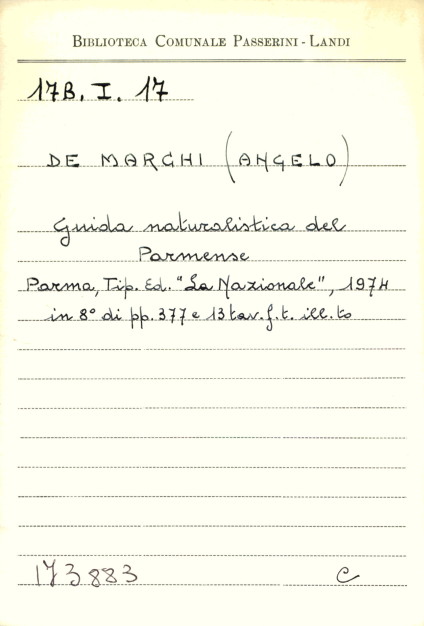 BIBLIOTECA COMUNALE PASSERINI - LANDI
17B. I. 17
DE MARCHI (ANGELO)
Guida naturalistica del
Parmense
Parma, Tip. Ed. "La Nazionale", 1974
in 8° di pp. 377 e 13 tav. f. t. ill. to
173883 C